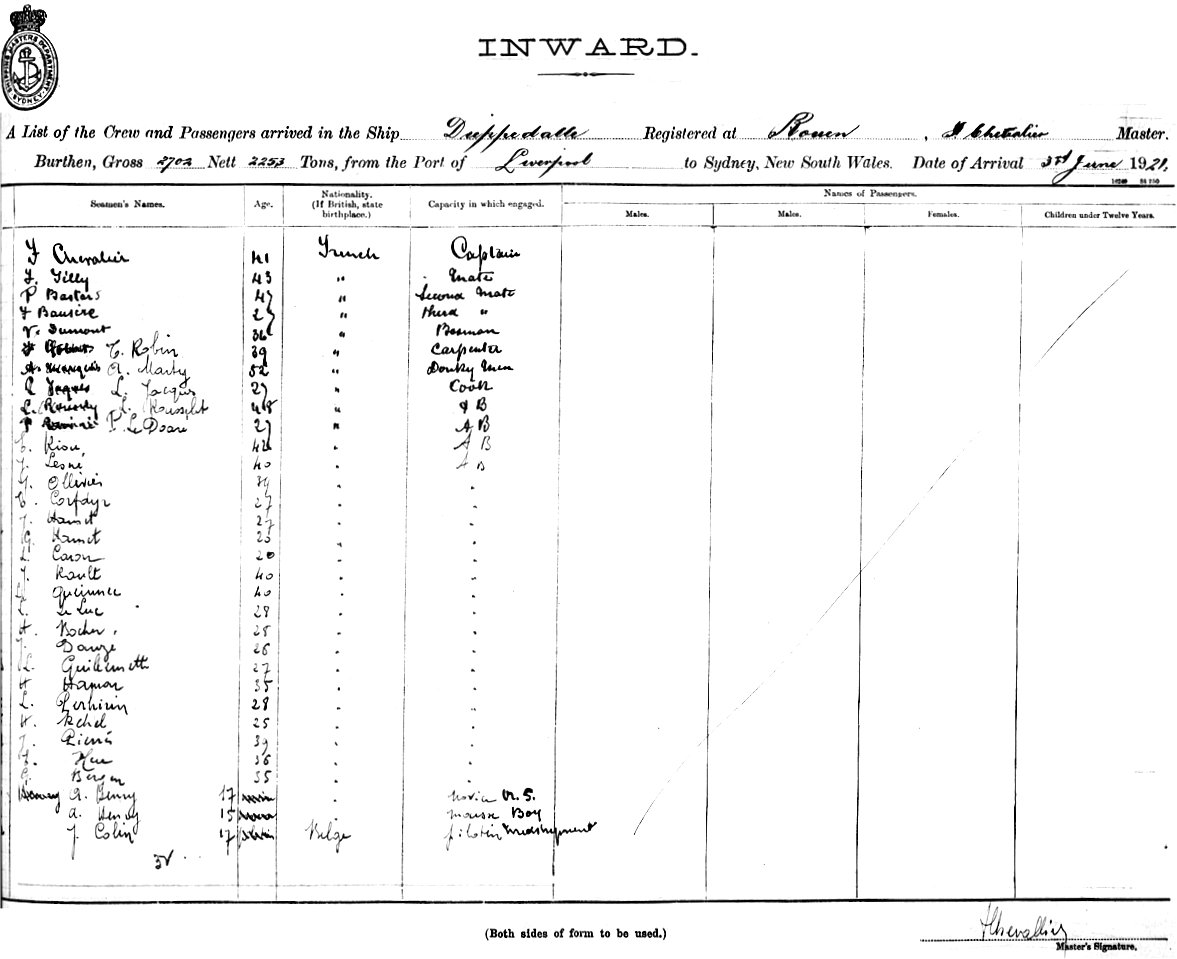 SHIPPING MASTERS DEPARTMENT SYDNEY
INWARD.
A List of the Crew and Passengers arrived in the Ship Dieppedalle Registered at Rouen, F Chevalier Master.
Burthen, Gross 2702 Nett 2253 Tons, from the Port of Liverpool to Sydney, New South Wales. Date of Arrival 3rd June 1921,
Seamen's Names. Age. Nationality. (If British, state birthplace.) Capacity in which engaged. Names of Passengers.
Males. Males. Females. Children under Twelve Years.
F Chevalier 41 French Captain
F. Tilly 43 " Mate
P Bastard 47 " Second Mate
F Baudire 27 " third "
V. Dumont 36 " Bosman
T. Robin 39 " Carpenter
A. Marty 52 " Donky Men
L. Jacques 27 " Cook
L. 48 " A B
P. Le Doaré 27 " A B
Kiou, 42 " A B
Lesné 40 " A B
Ollivier 39 " "
C. Corfdyr 27 " "
Hamet 27 " "
G. Hamet 25 " "
L. Caron 20 " "
Rault 40 " "
Queinnec 40 " "
L. Le Luc 28 " "
H. Rocher. 25 " "
Dauze 26 " "
L. Guillemette 27 " "
H Hamon 35 " "
L. Perhirin 28 " "
H. Rehel 25 " "
Pierré 39 " "
Hue 36 " "
Bergen 35 " "
A. Henry 17 " novice O. S.
A. Henry 15 mousse Boy
J. Colin 17 Belge pilotin Midshipment
32
(Both sides of form to be used.)
F Chevallier
Master's Signature.